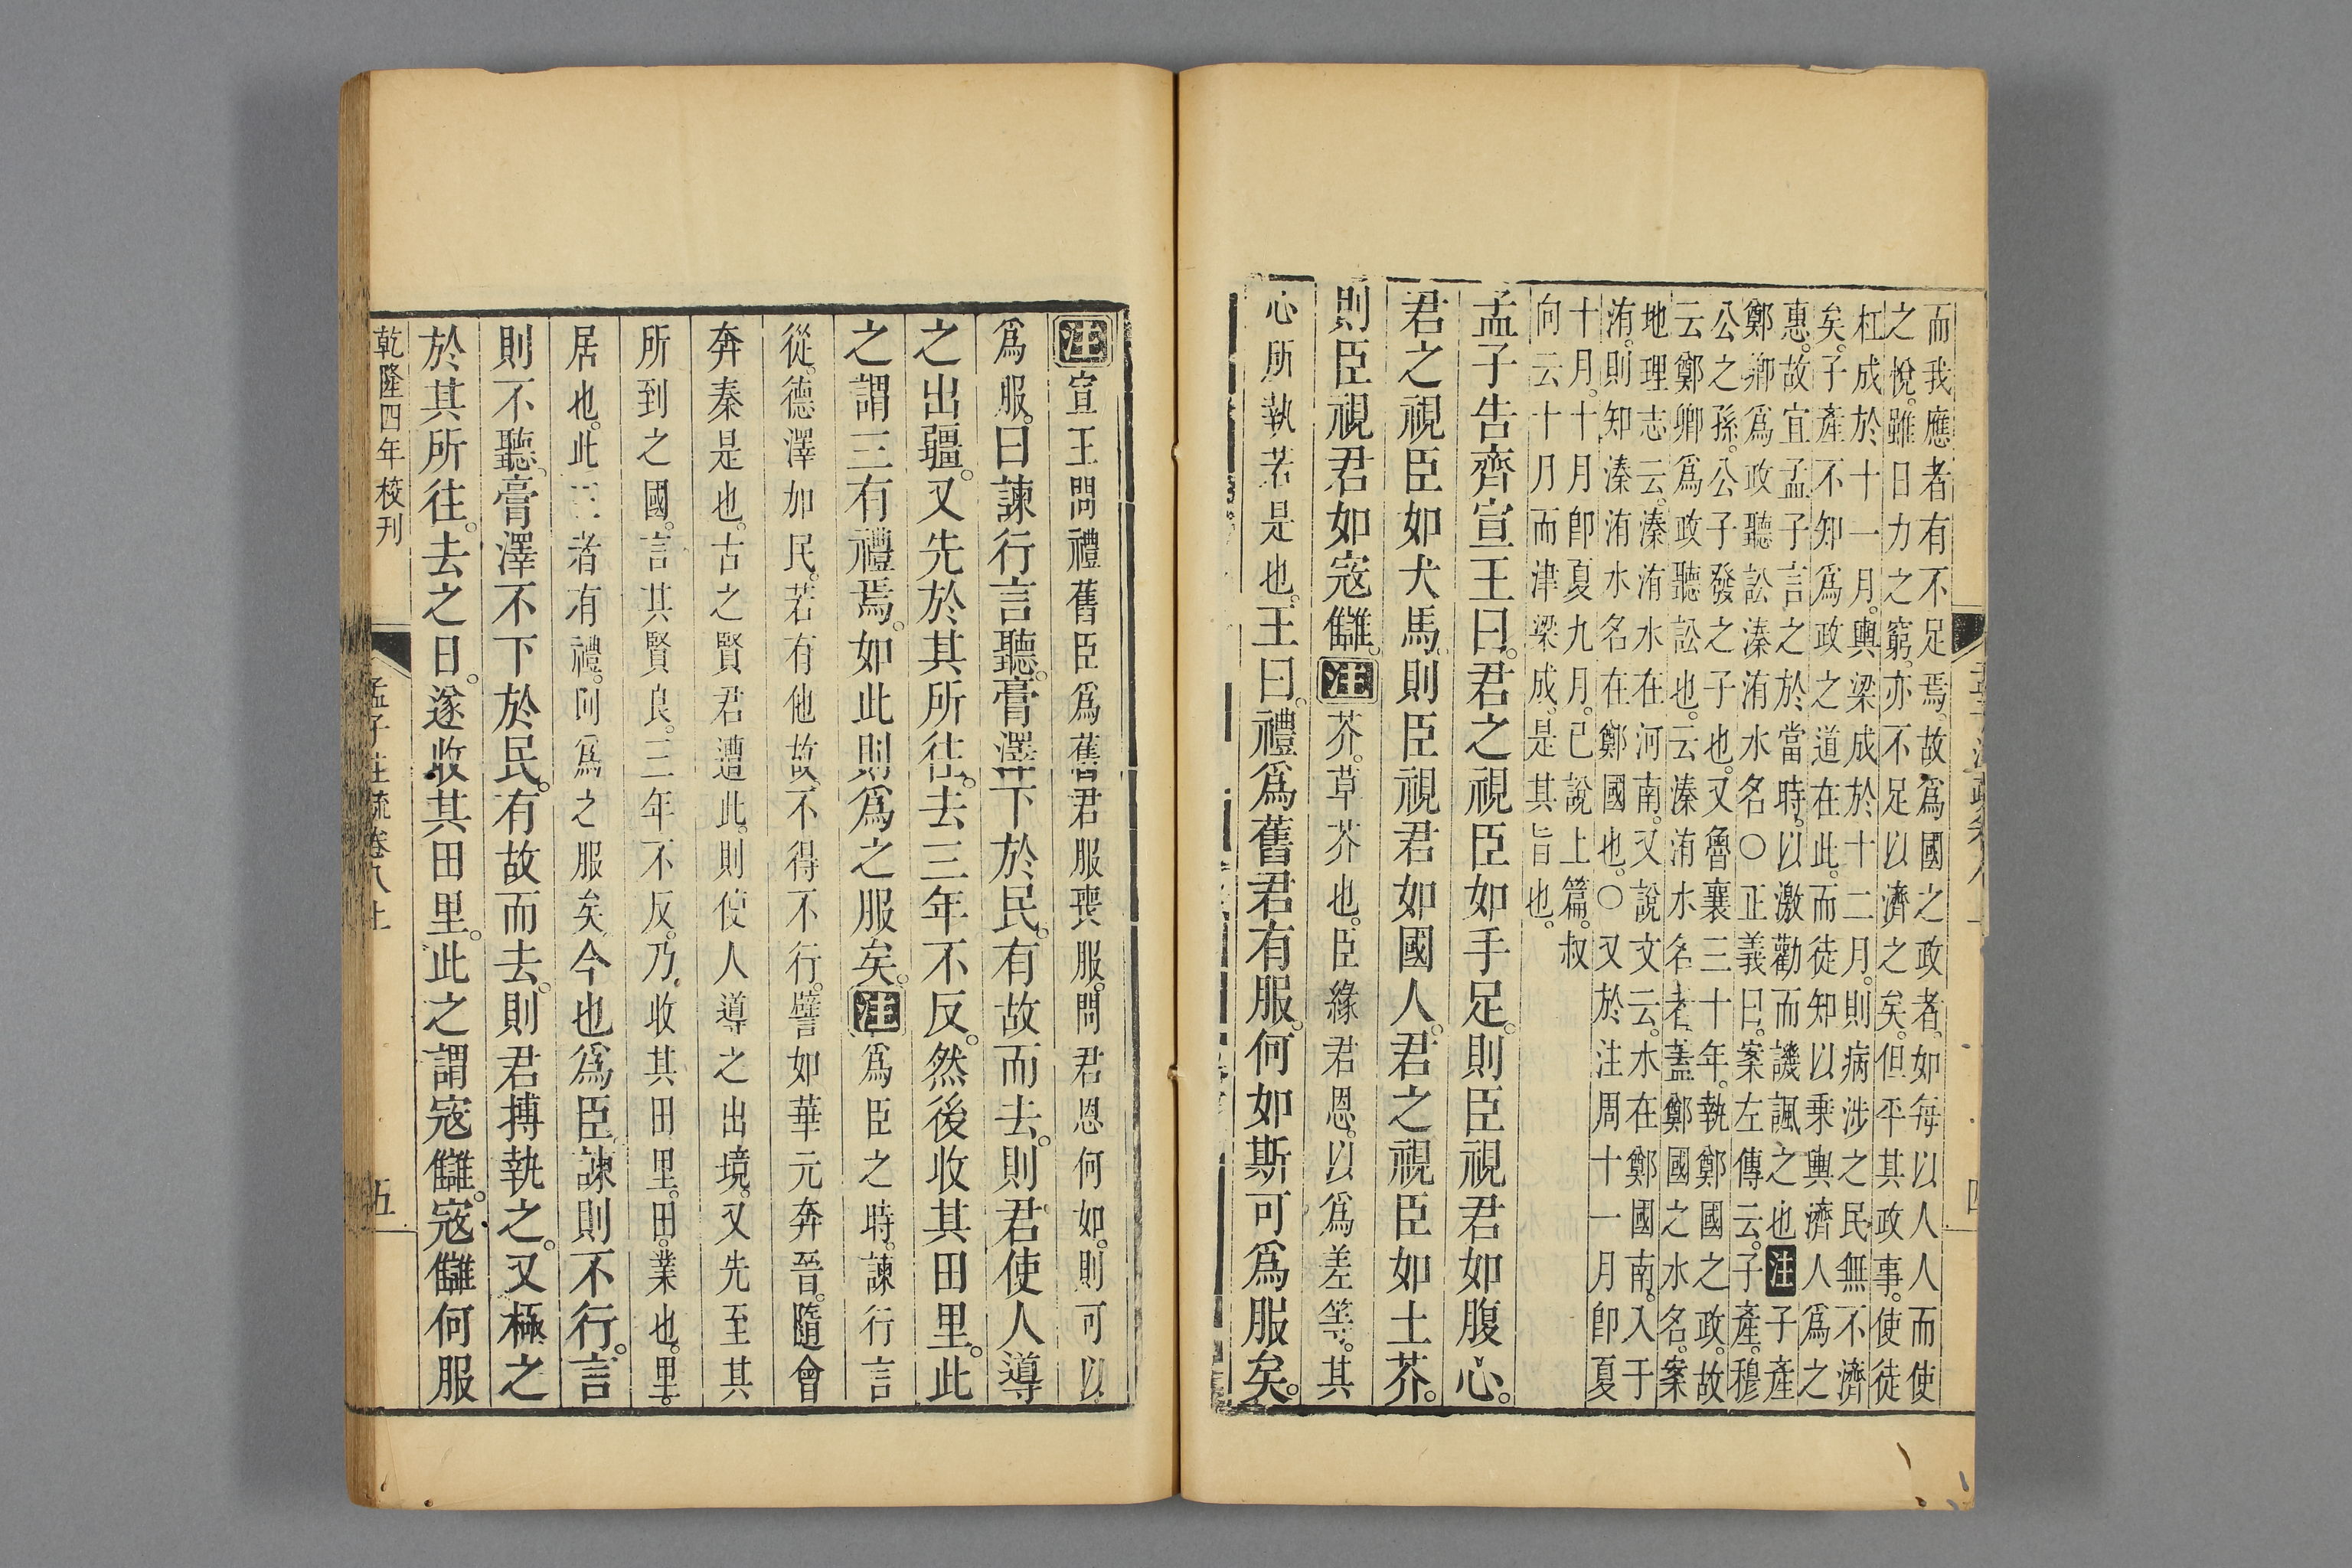 而我應者有不足焉。故爲國之政者。如每以人人而使
之悅。雖日力之窮。亦不足以濟之矣。但平其政事。使徒
杠成於十一月。輿梁成於十二月。則病涉之民無不濟
矣。子產不知爲政之道在此。而徒知以乗輿濟人爲之
惠。故宜孟子言之於當時。以激勸而譏諷之也注子產
鄭卿爲政聽訟溱洧水名○正義曰。案左傳云。子產。穆
公之孫。公子發之子也。又魯襄三十年。執鄭國之政。故
云鄭卿爲政聽訟也。云溱洧水名者。蓋鄭國之水名。案
地理志云。溱洧水在河南。又說文云。水在鄭國南。入于
洧。則知溱洧水名在鄭國也。○又於注周十一月卽夏
十月。十月卽夏九月。已說上篇。叔
向云十月而津梁成。是其旨也。
孟子告齊宣王曰。君之視臣如手足。則臣視君如腹心。
君之視臣如犬馬。則臣視君如國人。君之視臣如土芥。
則臣視君如寇讎。注芥。草芥也。臣緣君恩。以爲差等。其
心所執若是也。王曰。禮爲舊君有服。何如斯可爲服矣。
注宣王問禮舊臣爲舊君服喪服。問君恩何如。則可以
爲服。曰諫行言聽。膏澤下於民。有故而去。則君使人導
之出疆。又先於其所往。去三年不反。然後收其田里。此
之謂三有禮焉。如此則爲之服矣。注爲臣之時。諫行言
從。德澤加民。若有他故。不得不行。譬如華元奔晉。隨會
奔秦是也。古之賢君遭此。則使人導之出境。又先至其
所到之國。言其賢良。三年不反。乃收其田里。田。業也。里。
居也。此三者有禮。何爲之服矣。今也爲臣。諫則不行。言
則不聽。膏澤不下於民。有故而去。則君搏執之。又極之
於其所往。去之日。遂收其田里。此之謂寇讎。寇讎何服
乾隆四年校刊
孟子注疏卷八上
五